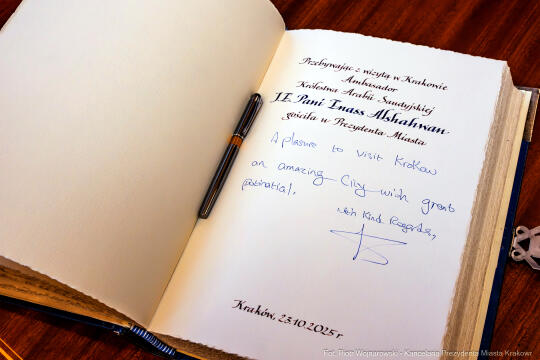 Przebywając z wizytą w Krakowie
Ambasador
Królestwa Arabii Saudyjskiej
J.E. Pani Inass Alshahwan
gościła u Prezydenta Miasta
A plasure to visit Krokow
an amazing City with great
potinatial.
With Kind Regards,
Kraków, 23.10.2025 r.
Fot. Piotr Wojnarowski - Kancelaria Prezydenta Miasta Krakowa